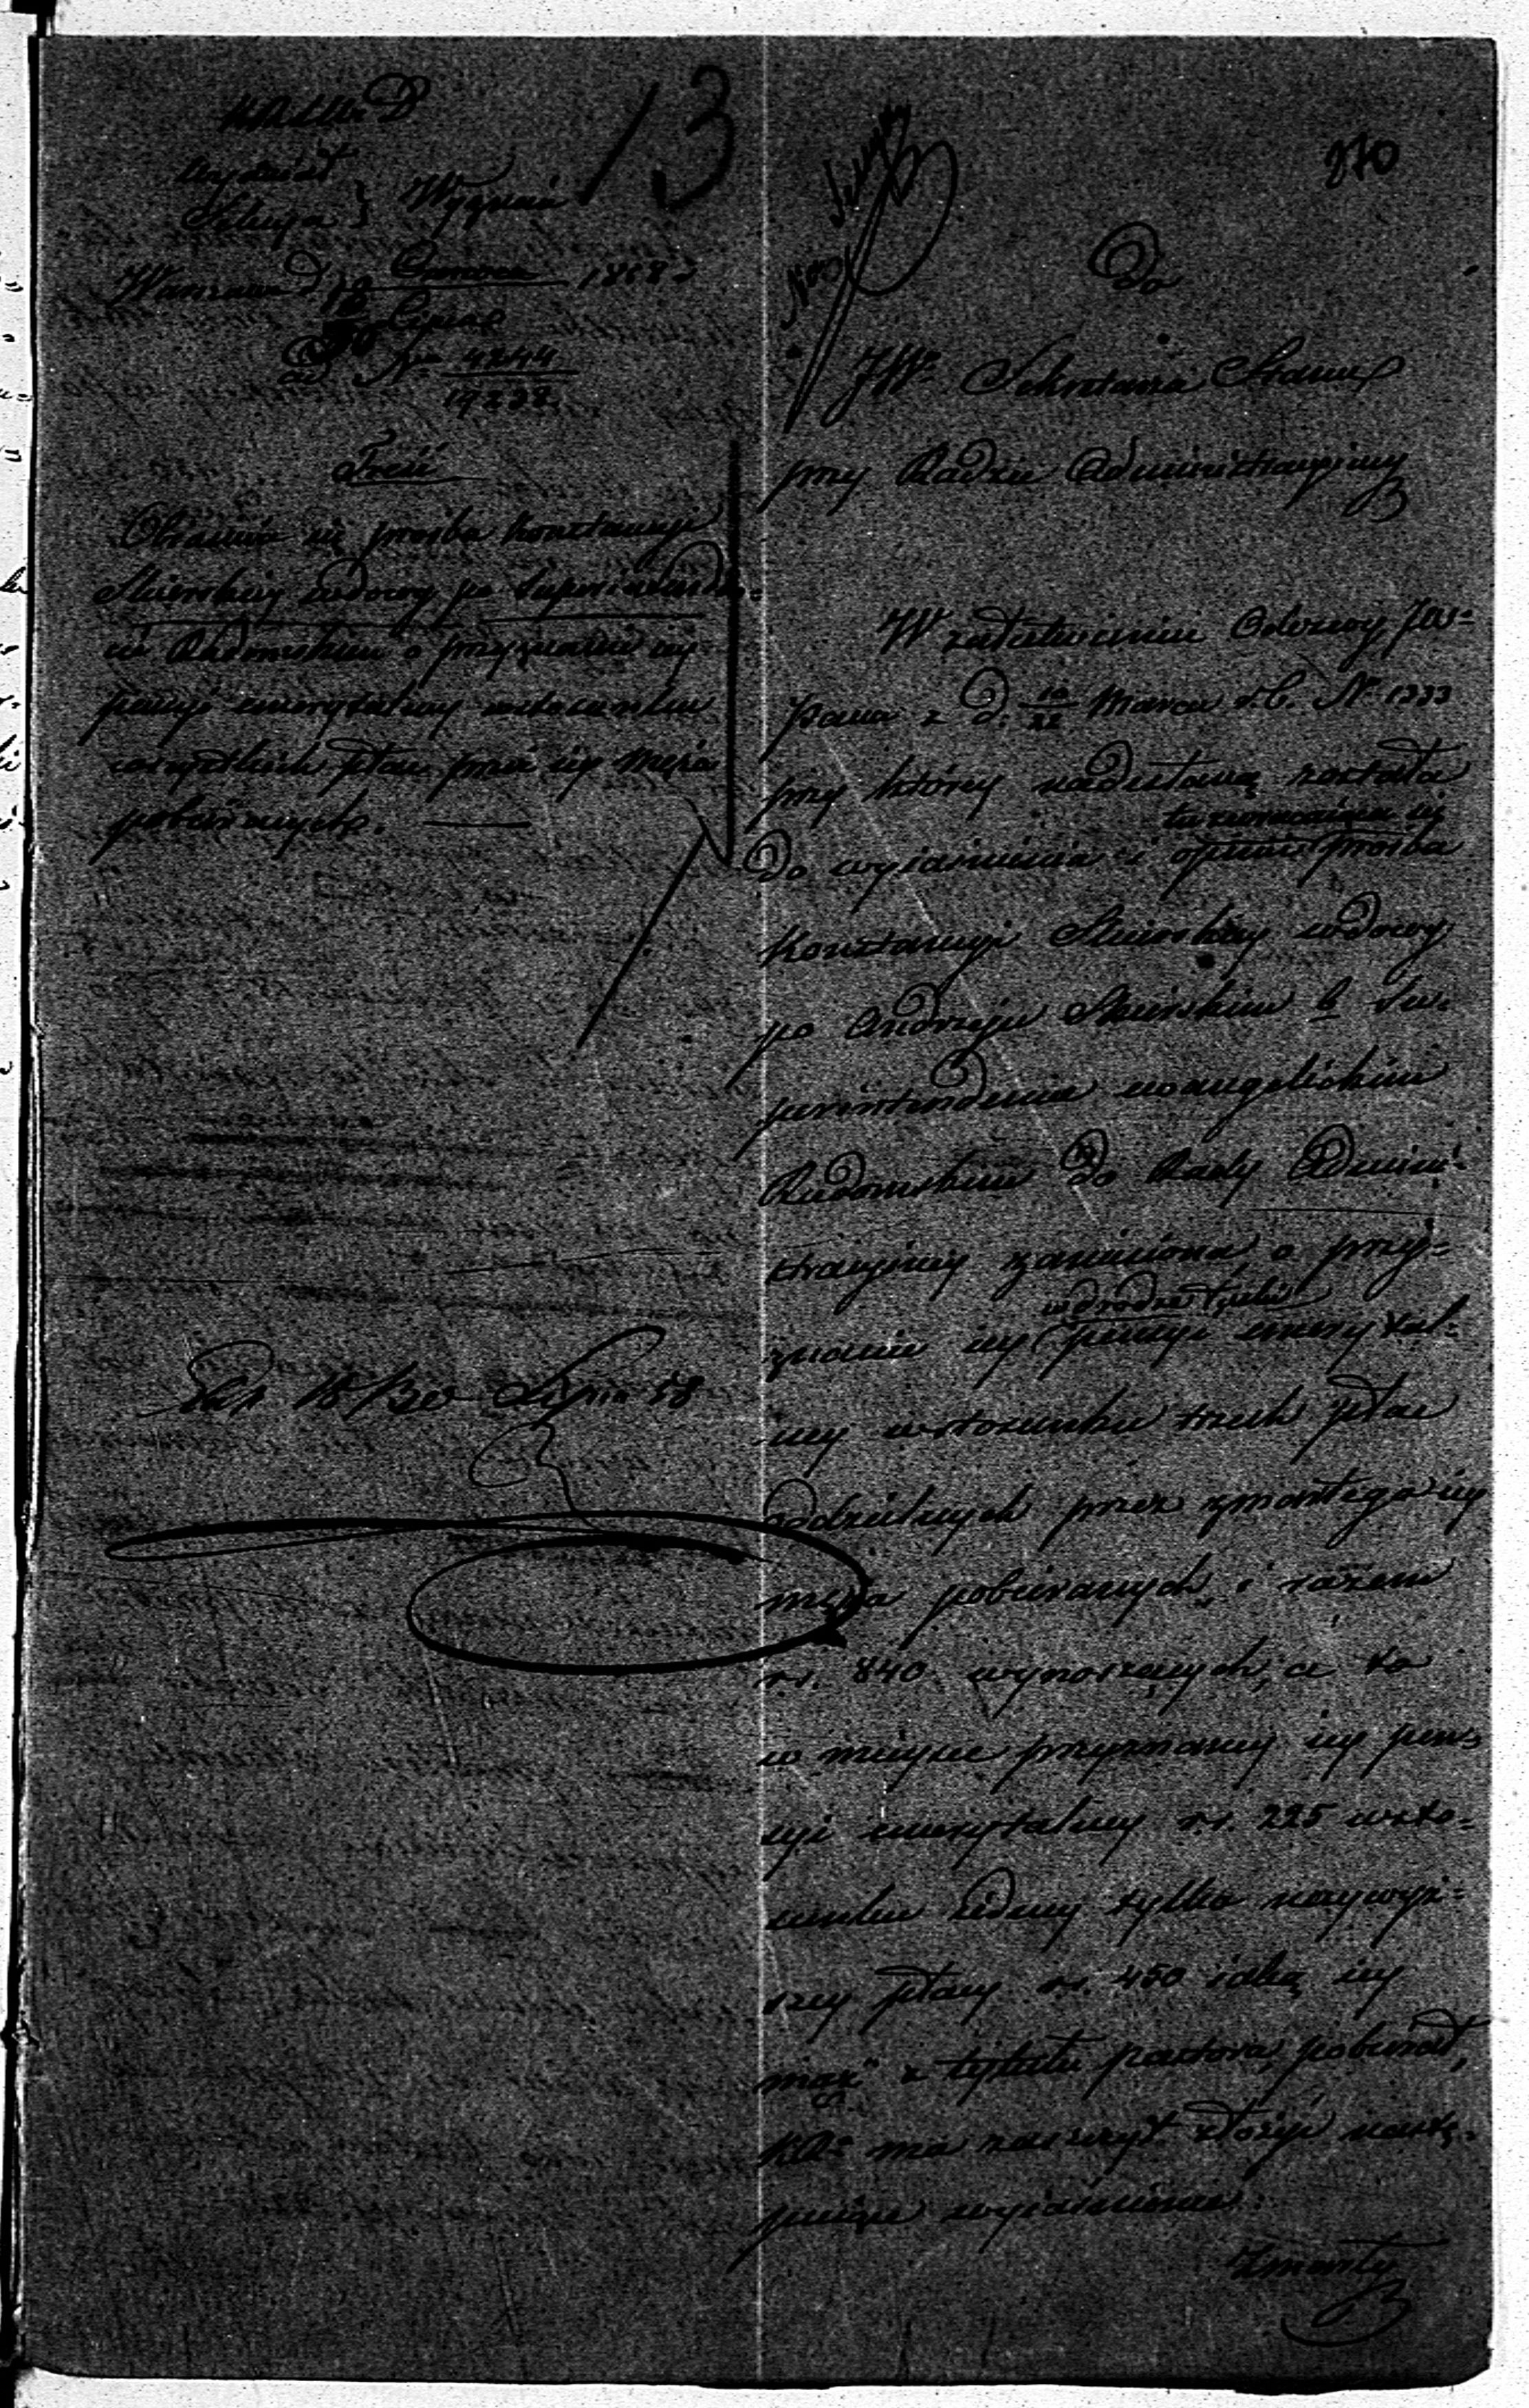 13
270
Wydział
Sekcya } Wyznań
Warszawa d. 18 Czerwca 1858 r
30 Lipca
ad Nr 4244
9232
Treść
prośba Konstancyi
Skierskiej wdowy po Superintenden-
cie Radomskim o przyznanie jej
pensyi emerytalnej w stosunku
wszystkich płac przez jej męża
pobieranych.
18/30 Lipca 58
Do
JW. Sekretarza Stanu
przy Radzie Administracyjnej
W załatwieniu Odezwy JW-
Pana z d. 10/22 Marca r. b. Nr 1333
przy której nadesłaną została
do wyjaśnienia i opinii prośba
tu zwracająca się
Konstancyi Skierskiej wdowy
po Andrzeju Skierskim b. Su-
perintendencie ewangelickim
Radomskim do Rady Admini-
stracyjnej zaniesiona, o przy-
znanie jej pensyi emerytal-
w drodze
nej w stosunku trzech płac
oddzielnych przez zmarłego jej
męża pobieranych, i razem
rs. 840 wynoszących, a to
w miejsce przyznanej jej pen-
syi emerytalnej rs. 225 w sto-
sunku jednej tylko najwyż-
szej płacy rs. 450 jaką jej
mąż z tytułu pastora, pobierał,
ma zaszczyt złożyć nastę-
pujące wyjaśnienie:
Zmarły